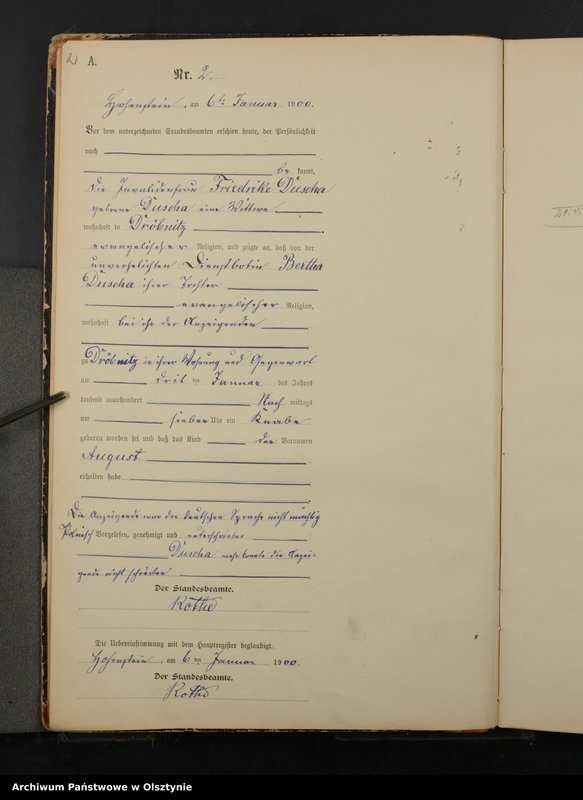 2
A.
Nr. 2.
Hohenstein, am 6ten Januar 1900.
Vor dem unterzeichneten Standesbeamten erschien heute, der Persönlichkeit
nach
be kannt,
die Invalidenfrau Friedrike Duscha
geborne Duscha eine Wittwe
wohnhaft in Dröbnitz
evangelischer Religion, und zeigte an, daß von der
unverehelichten Dienstbotin Bertha
Duscha ihrer Tochter
evangelischer Religion,
wohnhaft bei ihr der Anzeigenden
zu Dröbnitz in ihrer Wohnung und Gegenwart
am drit ten Januar des Jahres
tausend neunhundert Nach mittags
um sieben Uhr ein Knabe
geboren worden sei und daß das Kind den Vornamen
August
erhalten habe
Die Anzeigende war der deutschen Sprache nicht mächtig
Polnisch Vorgelesen, genehmigt und unterschrieben
Duscha mehr konnte die Anzei-
gende nicht schreiben
Der Standesbeamte.
Rothe
Die Uebereinstimmung mit dem Hauptregister beglaubigt.
Hohenstein, am 6ten Januar 1900.
Der Standesbeamte.
Rothe
Archiwum Państwowe w Olsztynie